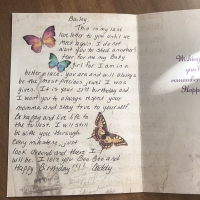 Bailey,
This is my last
love letter to you until we
meet again. I do not
want you to shed another
tear for me my Baby
Girl for I am in a
better place. You are and will always
be the most precious jewel I was
given. It is your 21st birthday and
I want you to always respect your
momma and stay true to yourself.
Be happy and live life to
the fullest. I will still
be with you through
Every milestone, just
look around and there I
will be. I love you Boo Boo and
Happy Birthday!!! Daddy
Wishing
you
remember
Happy